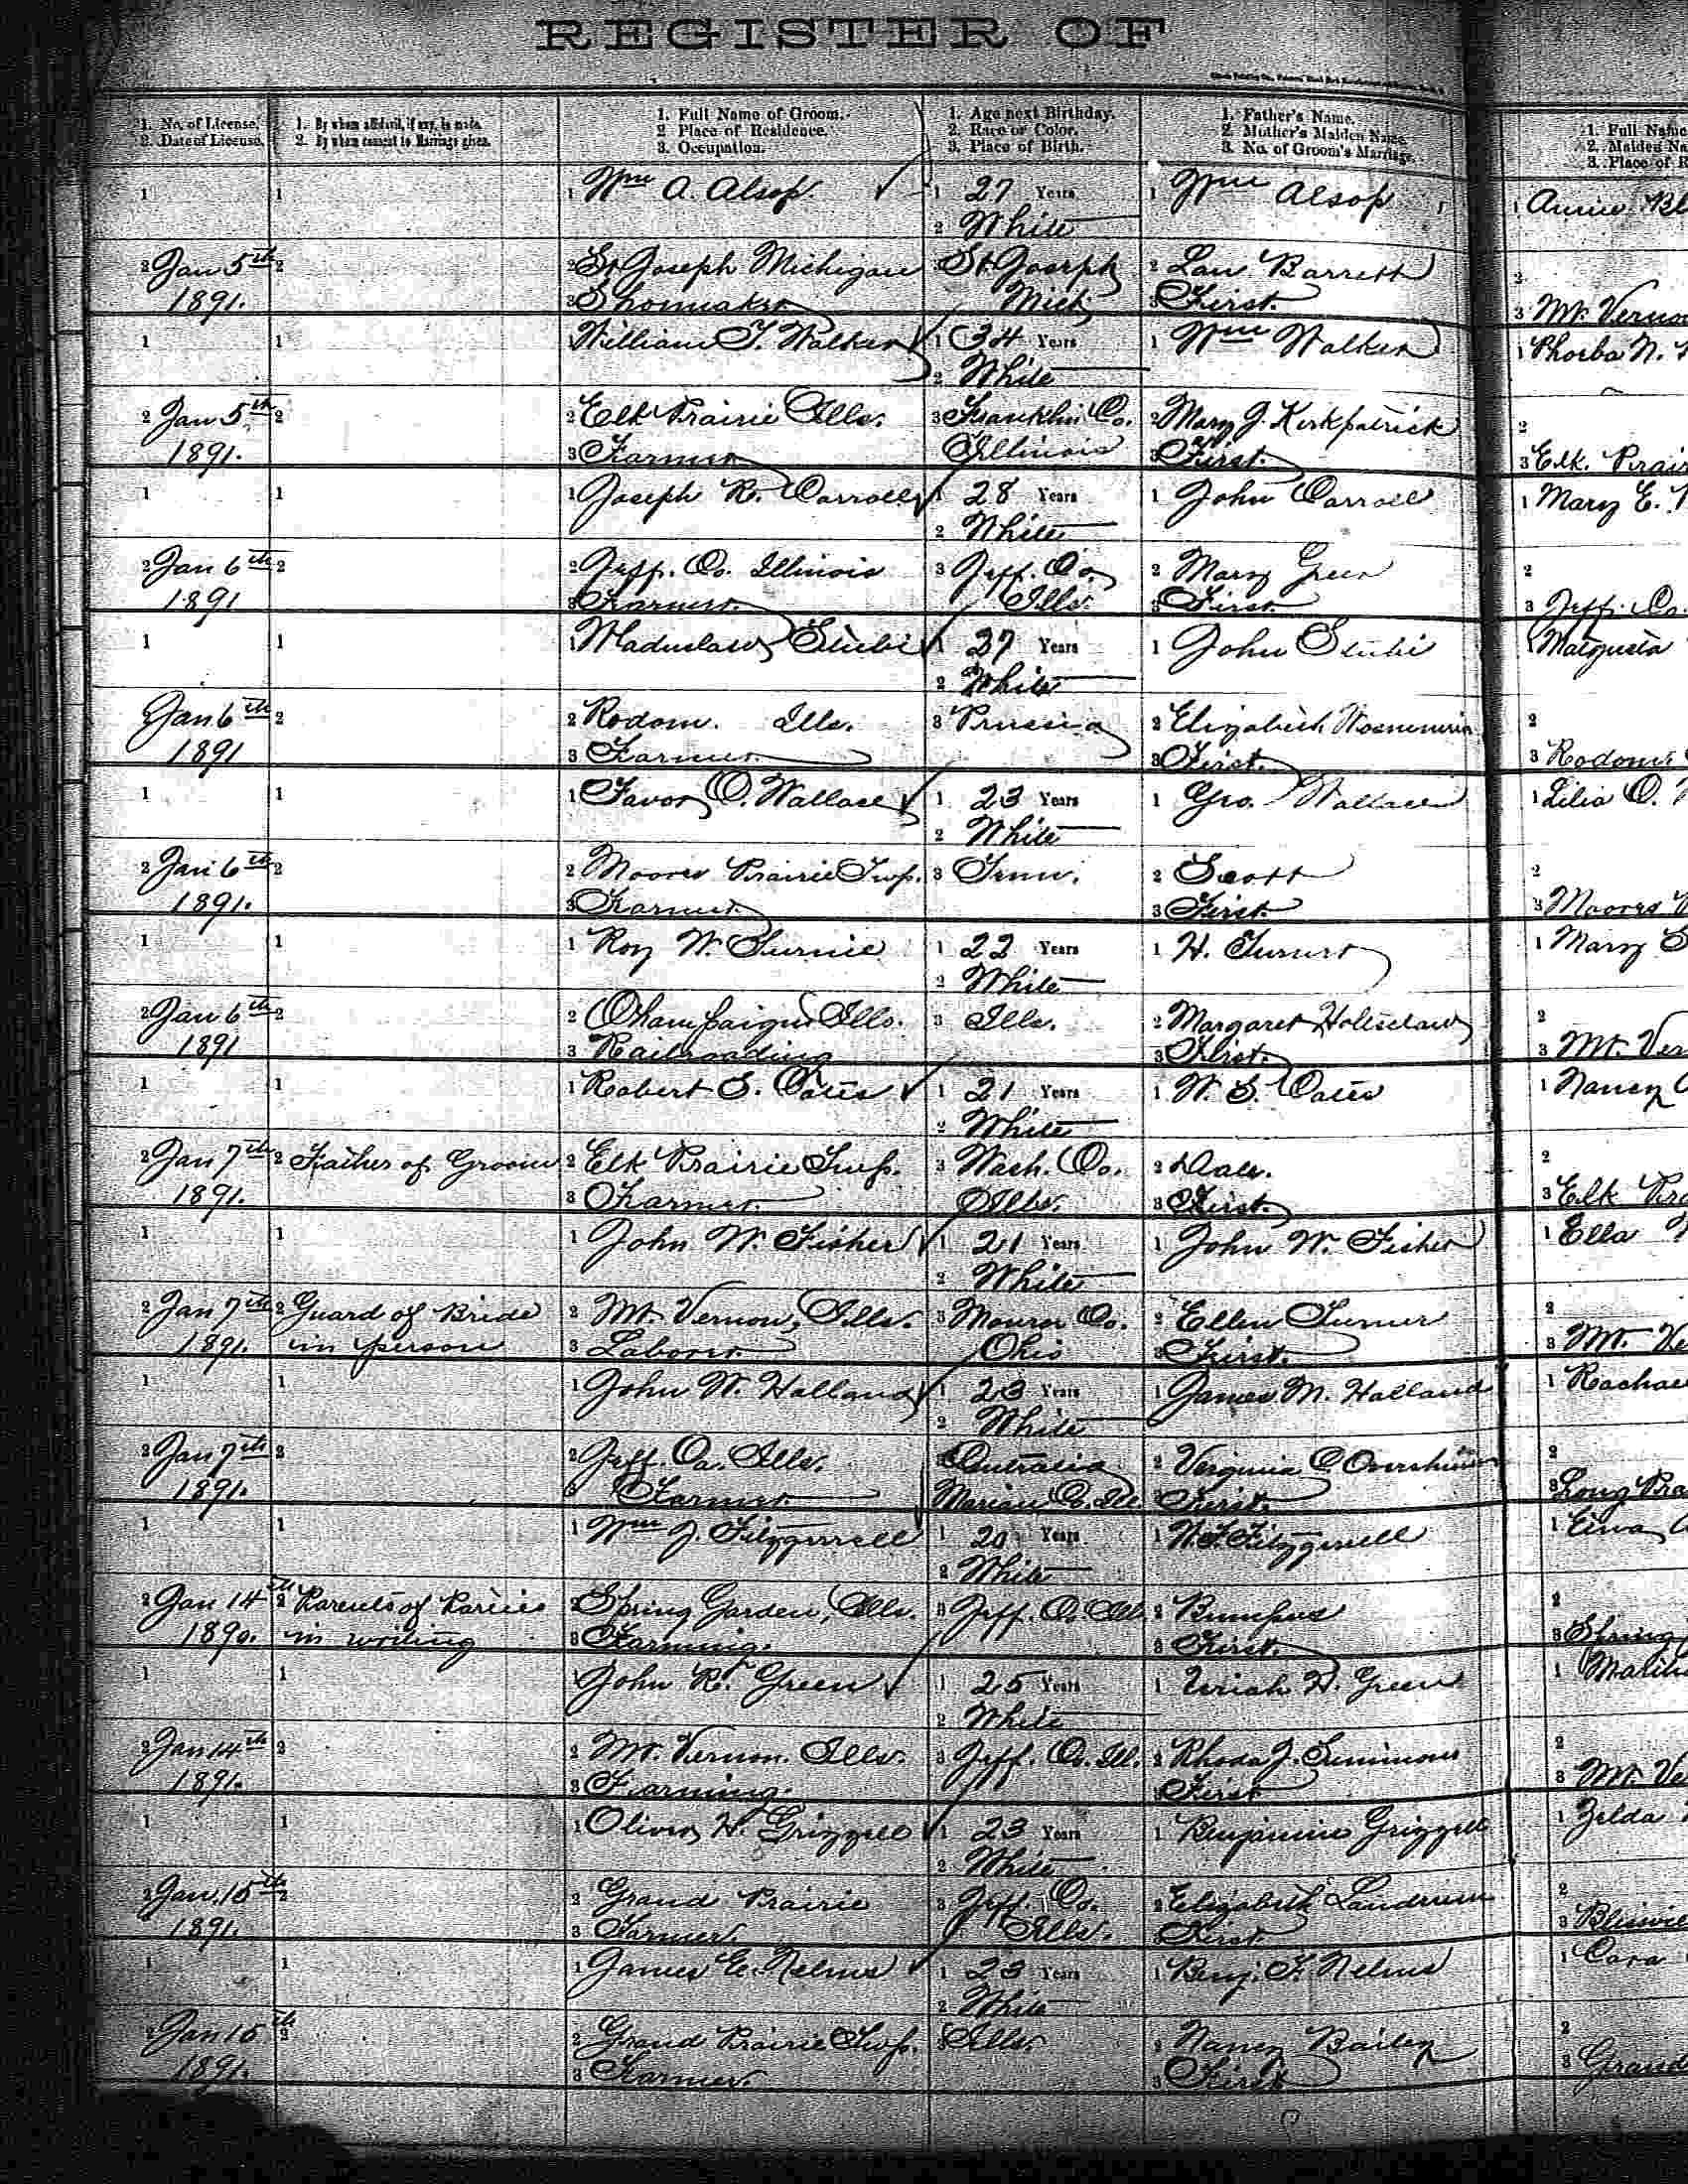 REGISTER OF
1. No. of License.
2. Date of License.
1. By whom affidavit, if any, is made.
2. By whom consent to Marriage given.
1. Full Name of Groom.
2 Place of Residence.
3. Occupation.
1. Age next Birthday.
2. Race or Color.
3. Place of Birth.
1. Father's Name.
2. Mother's Maiden Name.
3. No. of Groom's Marriage.
1. Full Name
2. Maiden Na
3. Place of R
1 1 1 Wm A. Alsop. 1 27 Years 1 Wm Alsop 1
2 White
2 Jan 5th 2 2 St Joseph Michigan 3 St. Joseph 2 Barrett 2
1891. 3 Mich 3 First. 3 Mt. Vernon
1 1 1 William T. Walker 1 34 Years 1 Wm Walker 1 Phoeba N.
2 White
2 Jan 5th 2 2 Elk Prairie Ills. 3 Franklin Co. 2 Mary J. Kirkpatrick 2
1891. 3 Farmer Illinois 3 First. 3 Elk. Prair
1 1 1 Joseph R. Carroll 1 28 Years 1 John Carroll 1 Mary E.
2 White
2 Jan 6th 2 2 Jeff. Co. Illinois 3 Jeff. Co. 2 Mary Green 2
1891 3 Farmer. Ills. 3 First. 3 Jeff. Co.
1 1 1 Stubi 1 27 Years 1 John Stubi 1
2 White
2 Jan 6th 2 2 Rodom. Ills. 3 Prussia 2 Elizabeth 2
1891 3 Farmer. 3 First. 3 Rodom.
1 1 1 Favor O. Wallace 1 23 Years 1 Geo. Wallace 1 Lilia O.
2 White
2 Jan 6th 2 2 Moores Prairie Twp. 3 Tenn. 2 Scott 2
1891. 3 Farmer. 3 First. 3 Moores
1 1 1 Roy W. 1 22 Years 1 H. Turner 1 Mary
2 White
2 Jan 6th 2 2 Champaign Ills. 3 Ills. 2 Margaret Holtsclaw 2
1891 3 Railroading 3 First. 3 Mt. Ver
1 1 1 Robert S. Oates 1 21 Years 1 W. S. Oates 1 Nancy
2 White
2 Jan 7th 2 Father of Groom 2 Elk Prairie Twp. 3 Wash. Co. 2 Dale. 2
1891. 3 Farmer. Ills. 3 First. 3 Elk Pra
1 1 1 John W. Fisher 1 21 Years 1 John W. Fisher 1 Ella
2 White
2 Jan 7th 2 Guard of Bride 2 Mt. Vernon, Ills. 3 Monroe Co. 2 Ellen Turner 2
1891. in person 3 Laborer Ohio 3 First. 3 Mt. Ve
1 1 1 John W. Holland 1 23 Years 1 James M. Holland 1 Rachae
2 White
2 Jan 7th 2 2 Jeff. Co. Ills. Centralia 2 Virginia C 2
1891. 3 Farmer. Marion Co. Ill. 3 First. 3 Long Pra
1 1 1 Wm J. Fitzgerrell 1 20 Years 1 Fitzgerrell 1
2 White
2 Jan 14th 2 Parents of Parties 2 Spring Garden, Ills. 3 Jeff. Co. Ill. 2 Bumpus 2
1890. in writing 3 Farming. 3 First. 3 Spring
1 1 1 John R. Green 1 25 Years 1 Uriah H. Green 1
2 White
2 Jan 14th 2 2 Mt. Vernon. Ills. 3 Jeff. Co. Ill. 2 Rhoda J. Simmons 2
1891. 3 Farming. 3 First 3 Mt. Ve
1 1 1 Oliver H. Grizzell 1 23 Years 1 Benjamin Grizzell 1 Zelda
2 White
2 Jan. 15th 2 2 Grand Prairie 3 Jeff. Co. 2 Elizabeth Landrum 2
1891. 3 Farmer. Ills. 3 First 3
1 1 1 James E. Nelms 1 23 Years 1 Benj. F. Nelms 1 Cora
2 White
2 Jan 15th 2 2 Grand Prairie Twp. 3 Ills. 2 Nancy Bailey 2
1891. 3 Farmer. 3 First 3 Grand